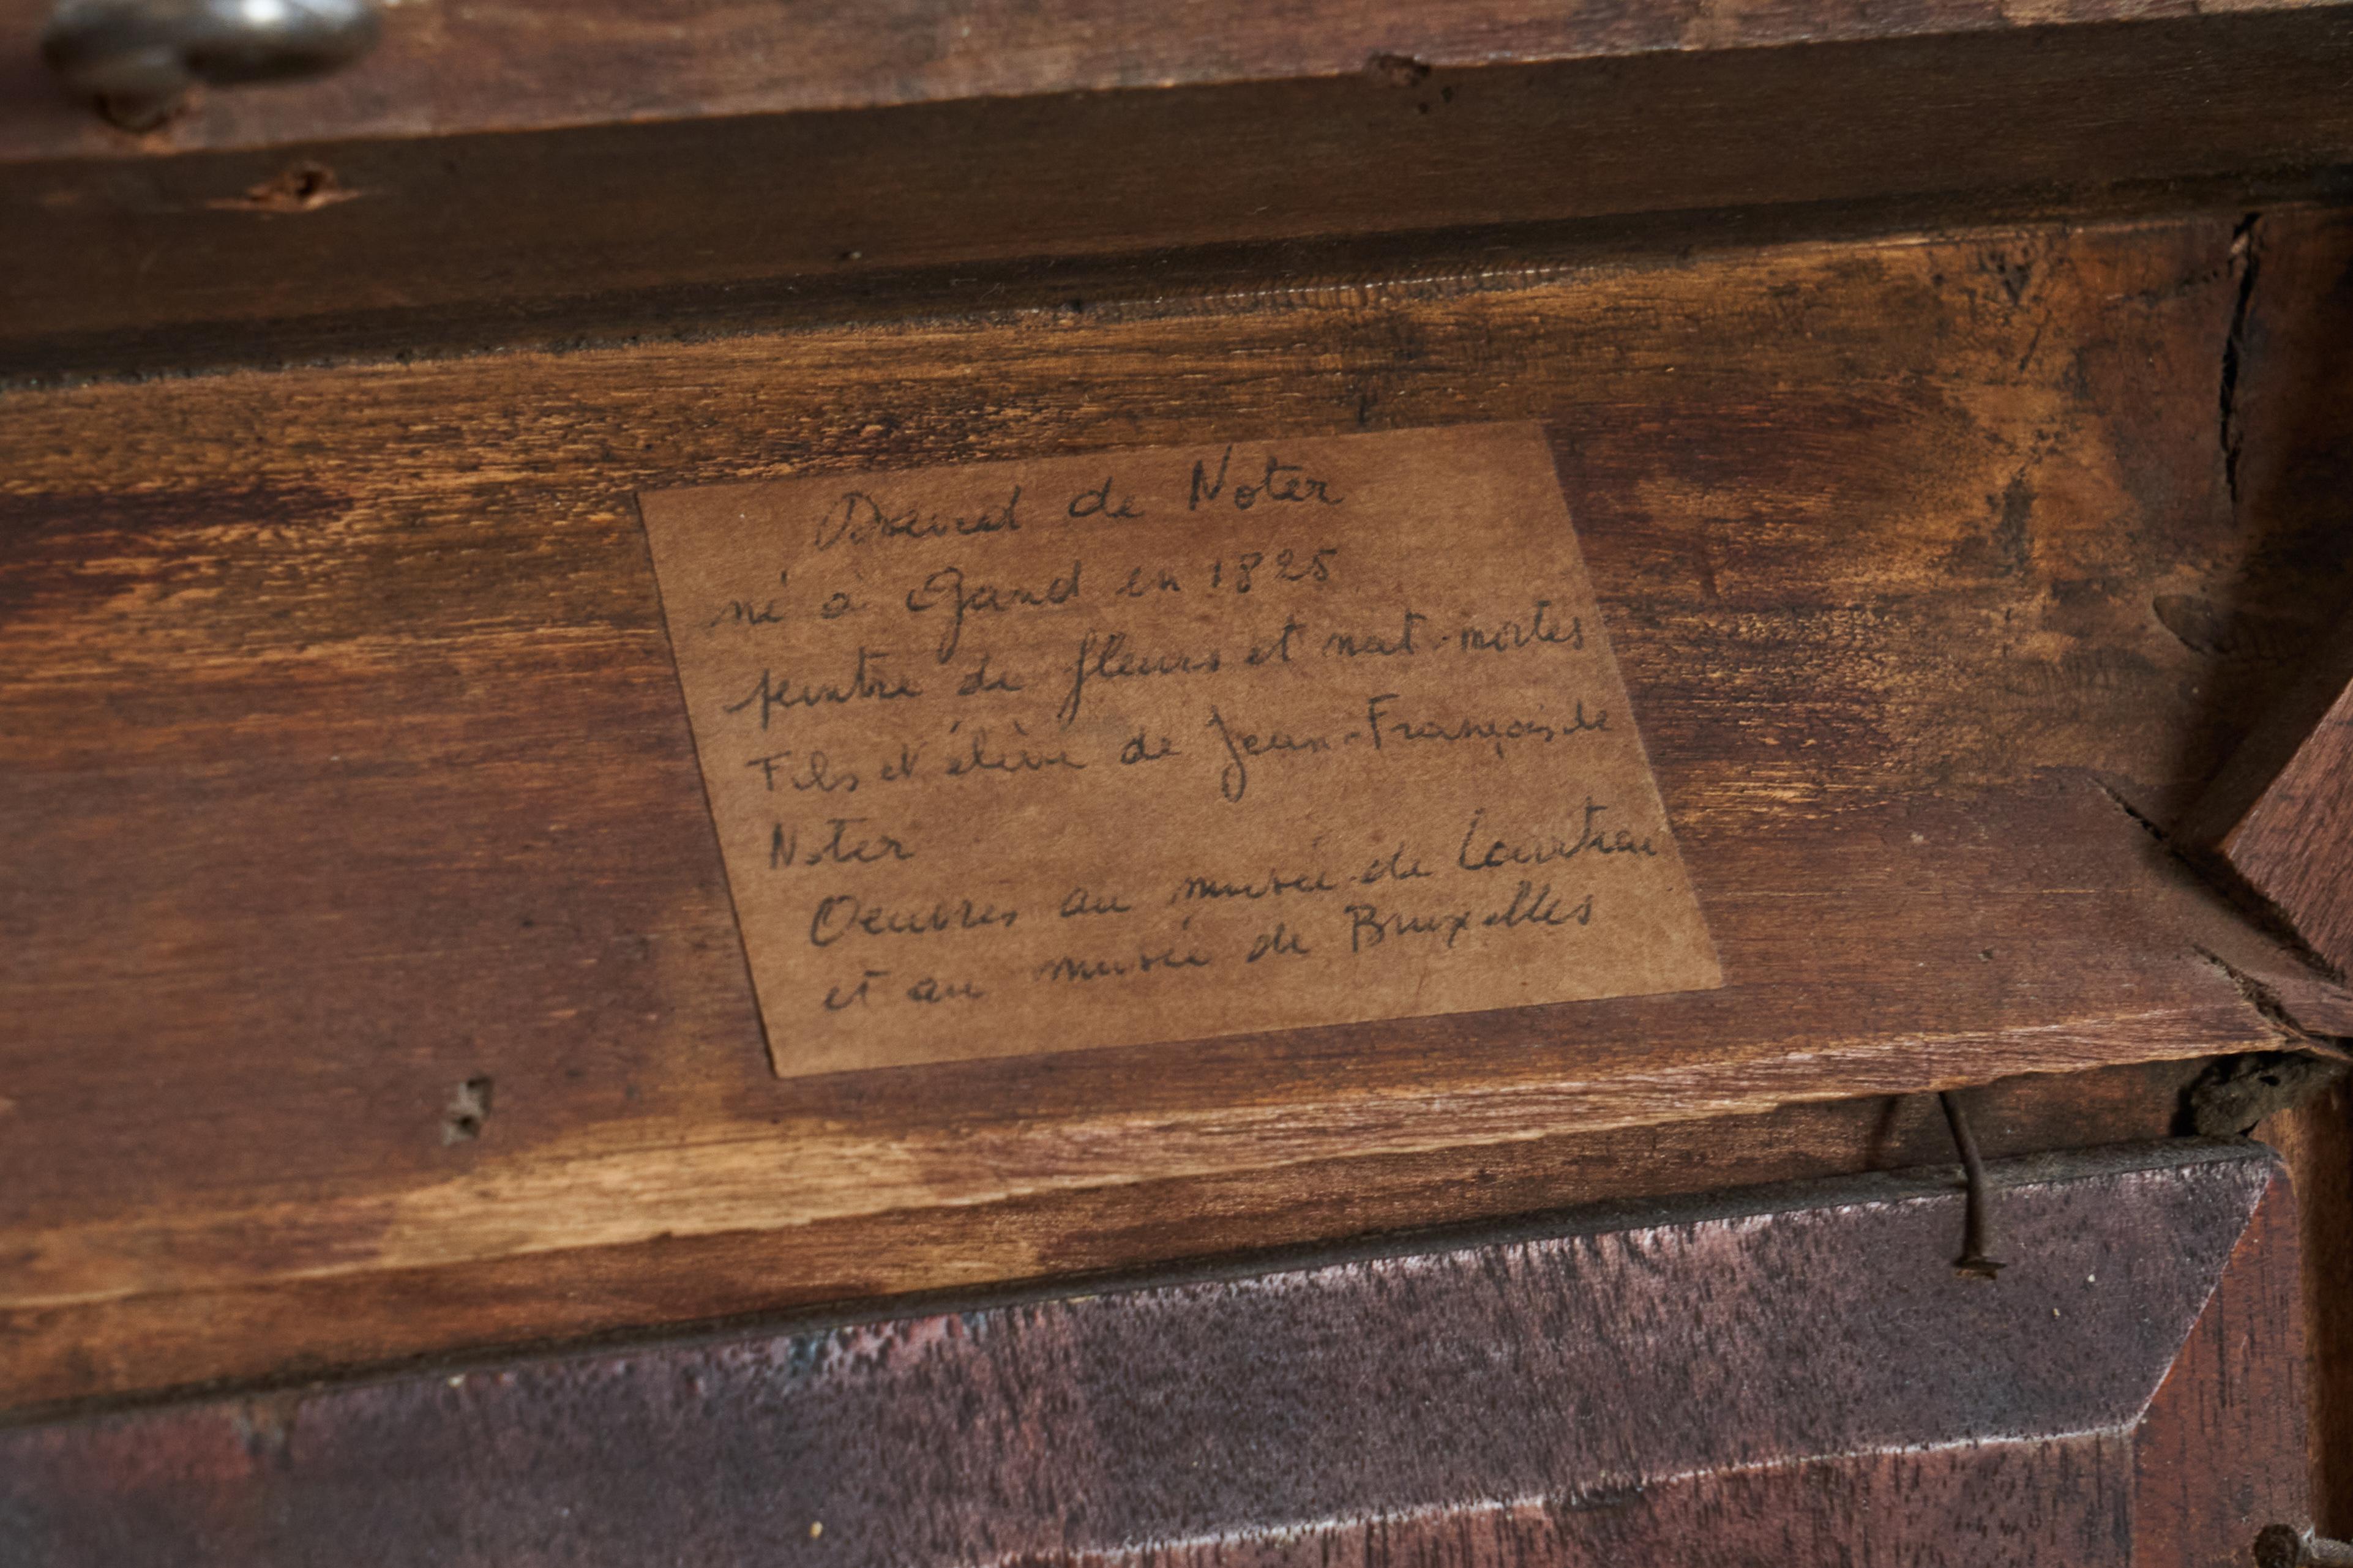 David de Noter
né à Gand en 1825
peintre de fleurs et nat. mortes
Fils et élève de Jean-François de
Noter
Oeuvres au musée de Courtrai
et au musée de Bruxelles